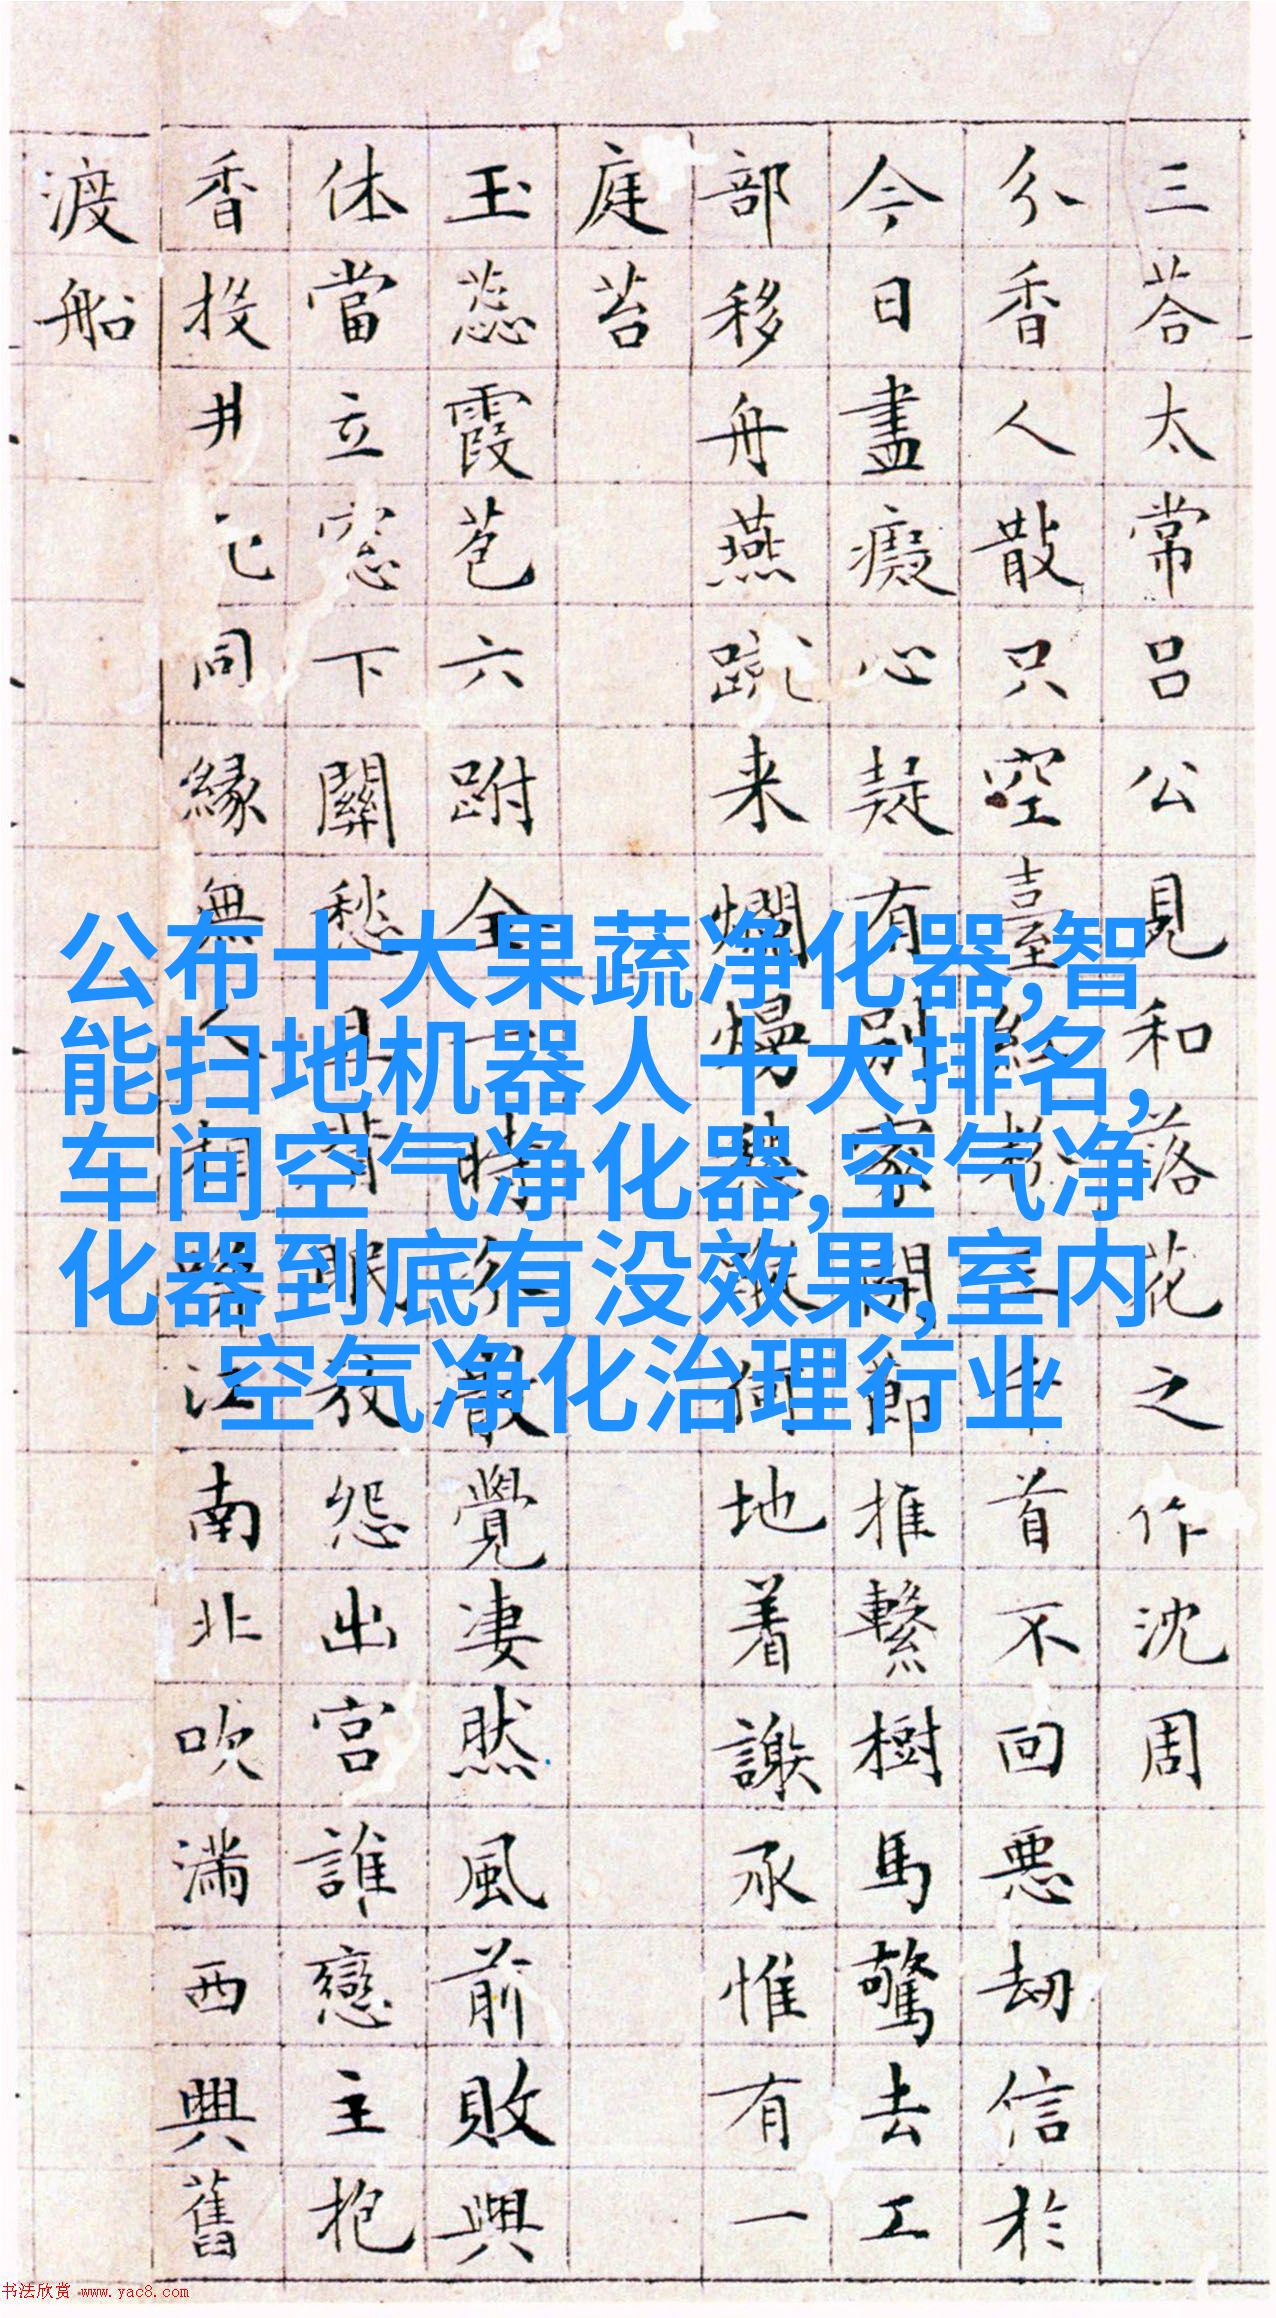 三荅太常吕公見和落花之作沈周
分香人散只空臺紅粉三千首不回惡劫信於
今日盡癡心疑有別家開節推繫樹馬驚去工
部移舟燕蹴来爛熳何地着謝承惟有一
庭苔
玉蕊霞苞六跗全一時分散覺凄然風前敗興
休當立窓下關愁且背眠放怨出宫誰戀主抱
香投井同緣無人江南北吹滿西興舊
渡船
公布十大果蔬净化器,智
能扫地机器人十大排名,
车间空气净化器,空气净
化器到底有没效果,室内
空气净化治理行业
书法欣赏 www.yac8.com